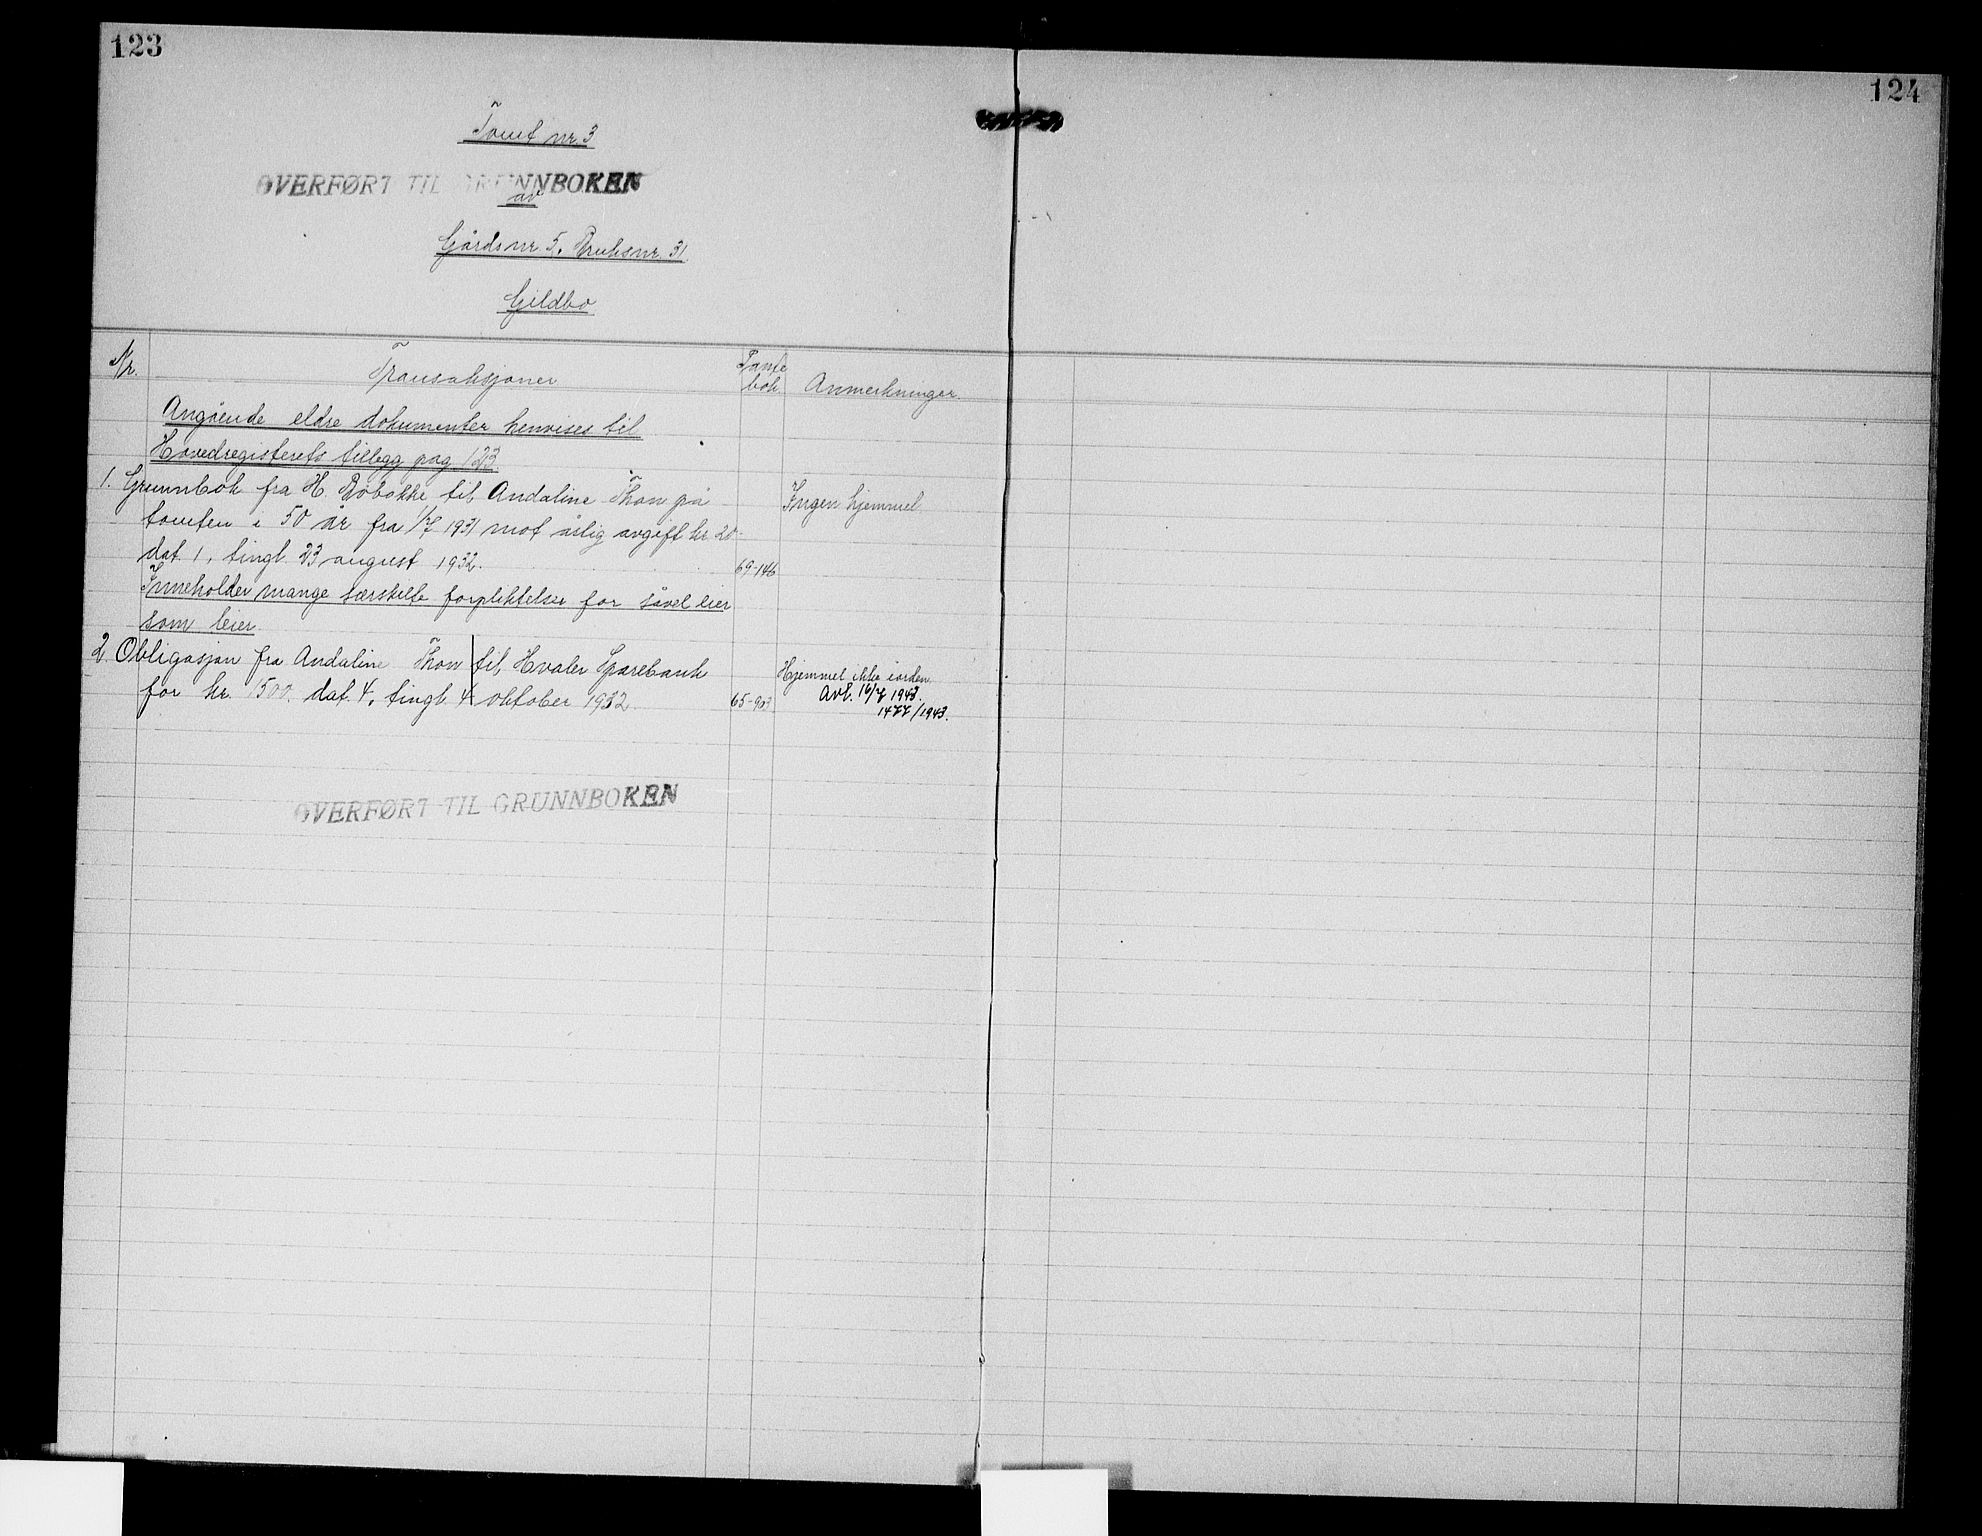 123
124
Tomt nr. 3
OVERFØRT TIL GRUNNBOKEN
av
Gårdsnr. 5. Bruksnr. 31
Gildbo
Nr.
Transaksjoner
Pante
bok.
Anmerkninger.
Angående eldre dokumenter henvises til
Hovedregisterets tillegg pag. 123
1. Grunnbok fra H. Bøbakke til Andaline Thon på
Ingen hjemmel
tomten i 50 år fra 1/7 1931 mot årlig avgift kr. 20
dat 1, tingl. 23 august 1932.
69-146
Inneholder mange særskilte forpliktelser for såvel eier
som leier.
2 Obligasjon fra Andaline Thon til Hvaler Sparebank
Hjemmel ikke iorden
for kr. 1500. dat. 4, tingl. 4 oktober 1932.
65-903
Avl. 16/7 1943.
1477/1943.
OVERFØRT TIL GRUNNBOKEN